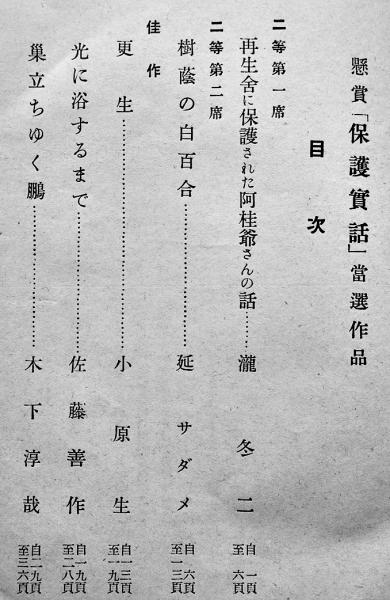 懸賞「保護實話」當選作品
目次
二等第一席
再生舍に保護された阿桂爺さんの話……瀧冬二 自一頁至六頁
二等第二席
樹蔭の白百合……延サダメ 自六頁至一三頁
佳作
更生……小原生 自一三頁至一九頁
光に浴するまで……佐藤善作 自一九頁至二八頁
巢立ちゆく鵬……木下淳哉 自二九頁至三六頁